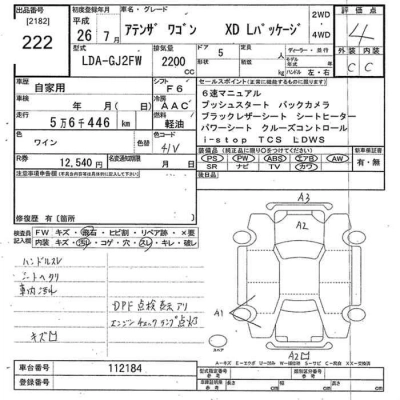 出品番号
[2182]
222
初度登録年月
平成
26年 7月
車名・グレード
アテンザ ワゴン XD Lパッケージ
2WD
4WD
評価点
4
型式
LDA-GJ2FW
排気量
2200
cc
ドア
5
定員
人
ディーラー・並行
ハンドル 左・右
外装
内装
C
C
車歴
自家用
シフト
F6
セールスポイント
6速マニュアル
プッシュスタート バックカメラ
ブラックレザーシート シートヒーター
パワーシート クルーズコントロール
i-stop TCS LDWS
車検
年 月
冷房
AAC
走行
5万6千446 km
燃料
軽油
色
ワイン
色替
色コード
41V
R券
12,540 円
名変期限
月 日
装備品
PS PW ABS エアB AW
SR ナビ TV カワ
新車時保証書
有・無
注意事項欄
後日品
修復歴 有(箇所 )
検査員
記入欄
FW キズ・飛石・ヒビ割・リペア跡・×要
内装 キズ・汚レ・コゲ・穴・スレ・キレ・破れ
ハンドルスレ
シートヘタリ
車内汚れ
DPF点検表示アリ
エンジンチェックランプ点灯
キズ
A3
A2
A1
A2
車台番号
112184
登録番号